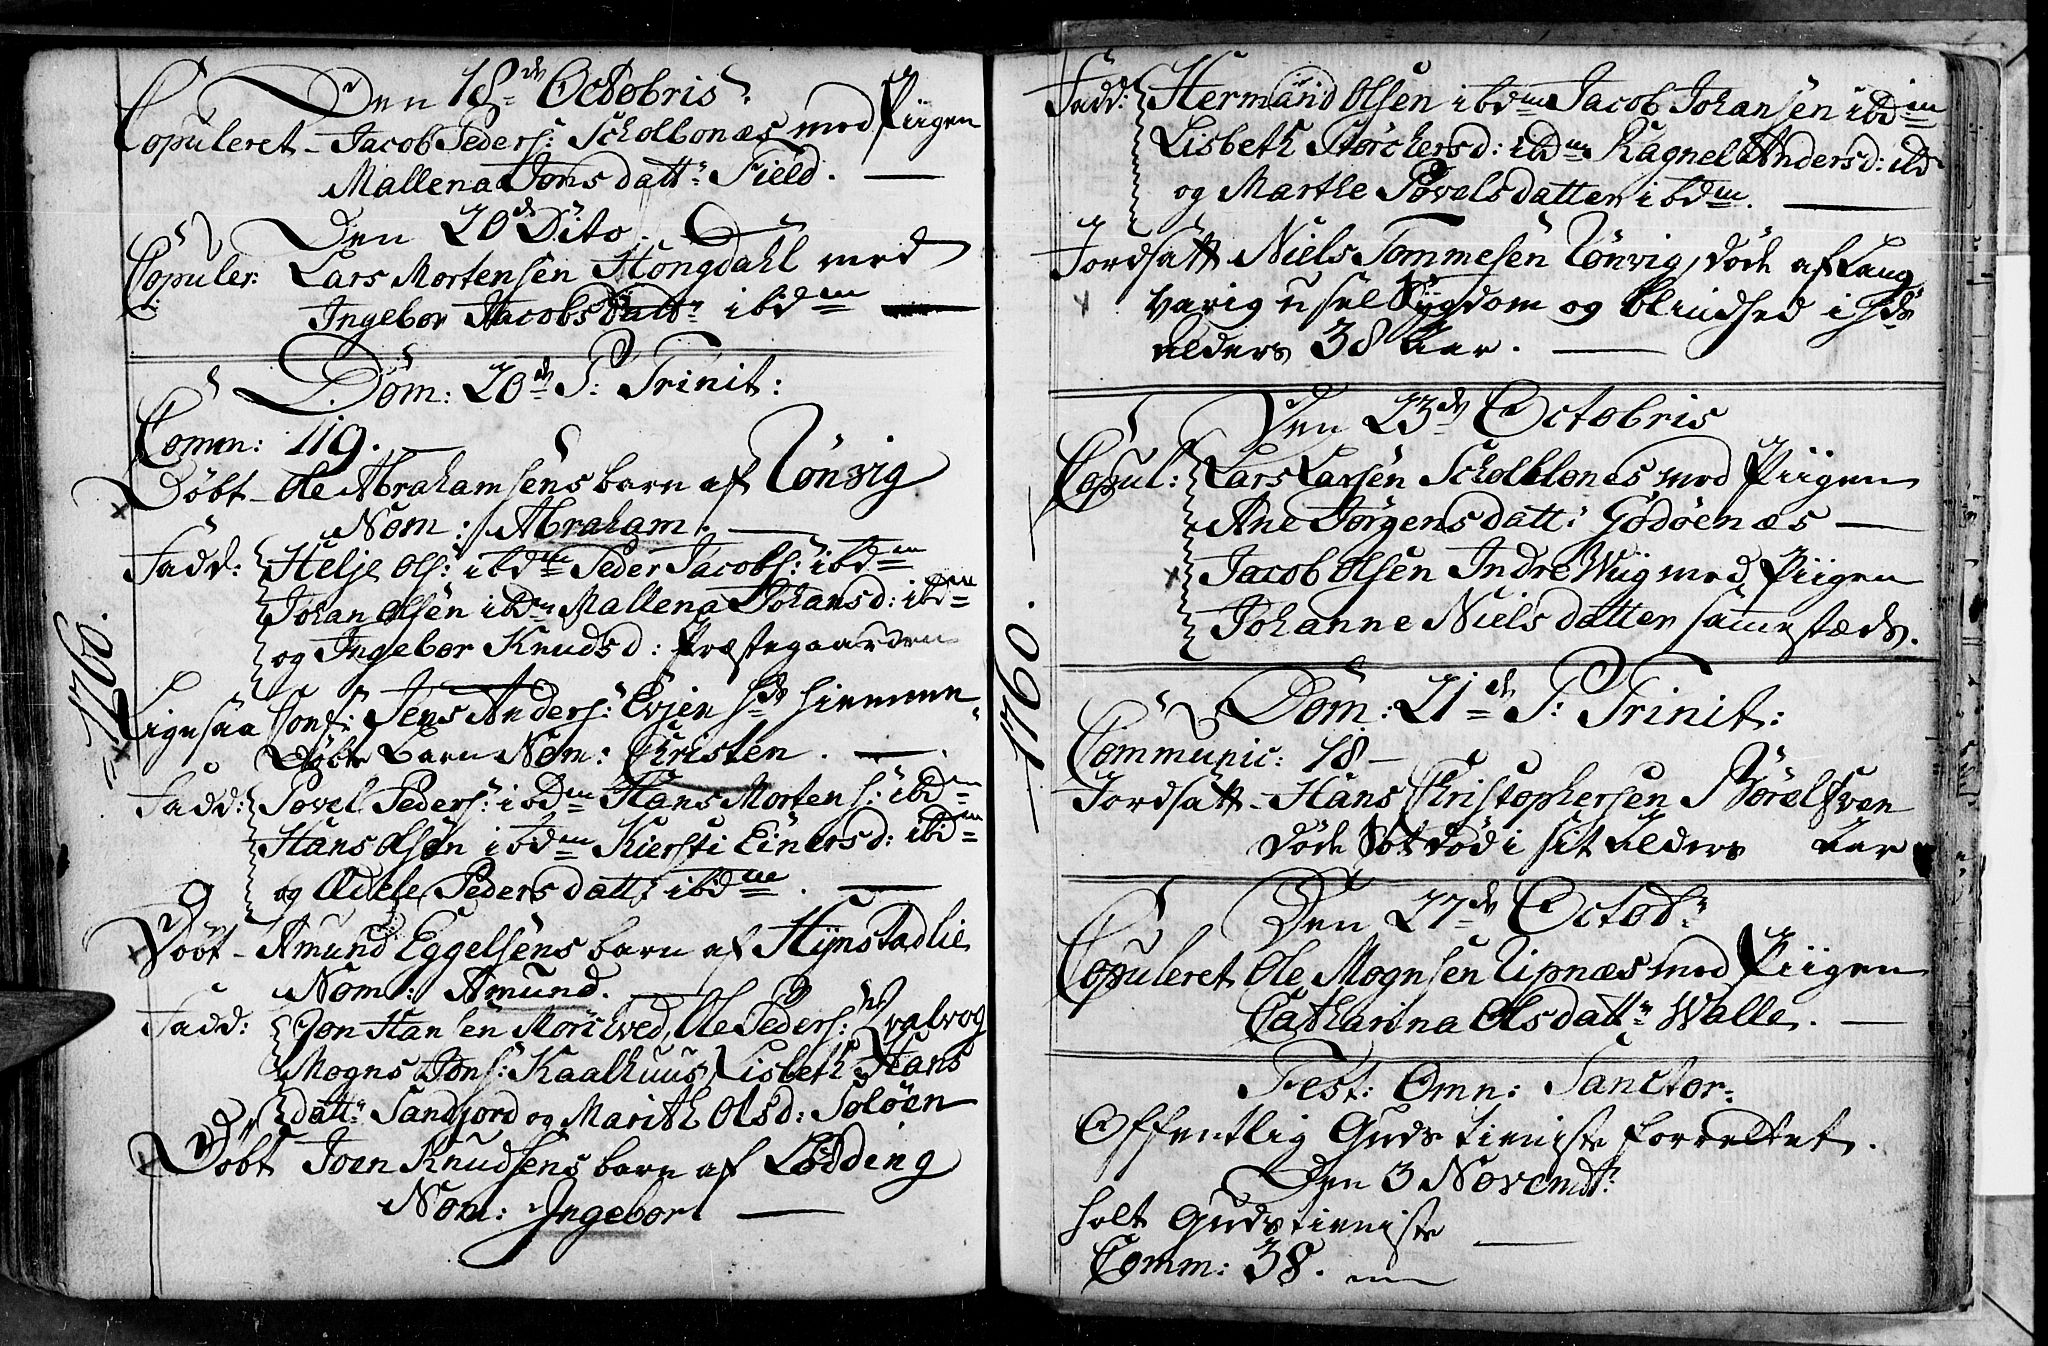 1760.
Den 18de Octobris.
Copuleret - Jacob Peders: Scholbonæs med Piigen
Mallena Jonsdattr Field.
Den 20d Dito.
Copuler: Lars Mortensen Hongdahl med
Ingebor Jacobsdattr ibdm
Dom: 20de P: Trinit:
Comm: 119.
Döbt - Ole Abrahamsens barn af Lönvig
Nom: Abraham.
Fadd: Helje Ols: ibdm Peder Jacobs: ibdm
Johan Olsen ibdm Mallena Johansd: ibdm
og Ingebor Knudsd: Præstegaarden
Ligesaa Conf: Jens Anders: Evjen hs hiemme
döbte Barn Nom: Kristen.
Fadd: Povel Peders: ibdm Hans Mortens: ibdm
Hans Olsen ibdm Kiersti Einersd: ibdm
og Edele Pedersdatt: ibdm.
Döbt - Amund Eggelsens barn af Hynstadlie
Nom: Amund.
Fadd: Jon Hansen Mörchved, Ole Peders: Qvalvog
Mogns Jons: Kaalhuus, Lisbeth Hans
dattr Sandjord og Marith Olsd: Soløen
Döbt Joen Knudsens barn af Lödding
Nom: Ingebor
1760.
Fadd: Hermand Olsen ibdm Jacob Johansen ibdm
Lisbeth Störchersd: ibdm Ragnel Andersd: ibd
og Marthe Povelsdatter ibdm.
Jordsatt Niels Tommesen Lönvig, döde af Lang
varig usel Sygdom og blindhed i hs
alders 38 Aar.
Den 23de Octobris
Copul: Lars Larsen Scholblones med Piigen
Ane Jörgensdatt: Godöenæs
Jacob Olsen Indre Wiig med Piigen
Johanne Nielsdatter sammestæds.
Dom: 21de P: Trinit:
Communic: 18
Jordsatt - Hans Kristophersen Börelfven
döde Sot död i sit Alders Aar
Den 27de Octobr
Copuleret Ole Mognsen Lipnæs med Piigen
Catharina Olsdattr Walle.
Fest: Omn: Sanctor:
Offentlig Guds tieniste forrettet.
Den 3 Novembr:
holt Gudstieniste
Comm: 38.